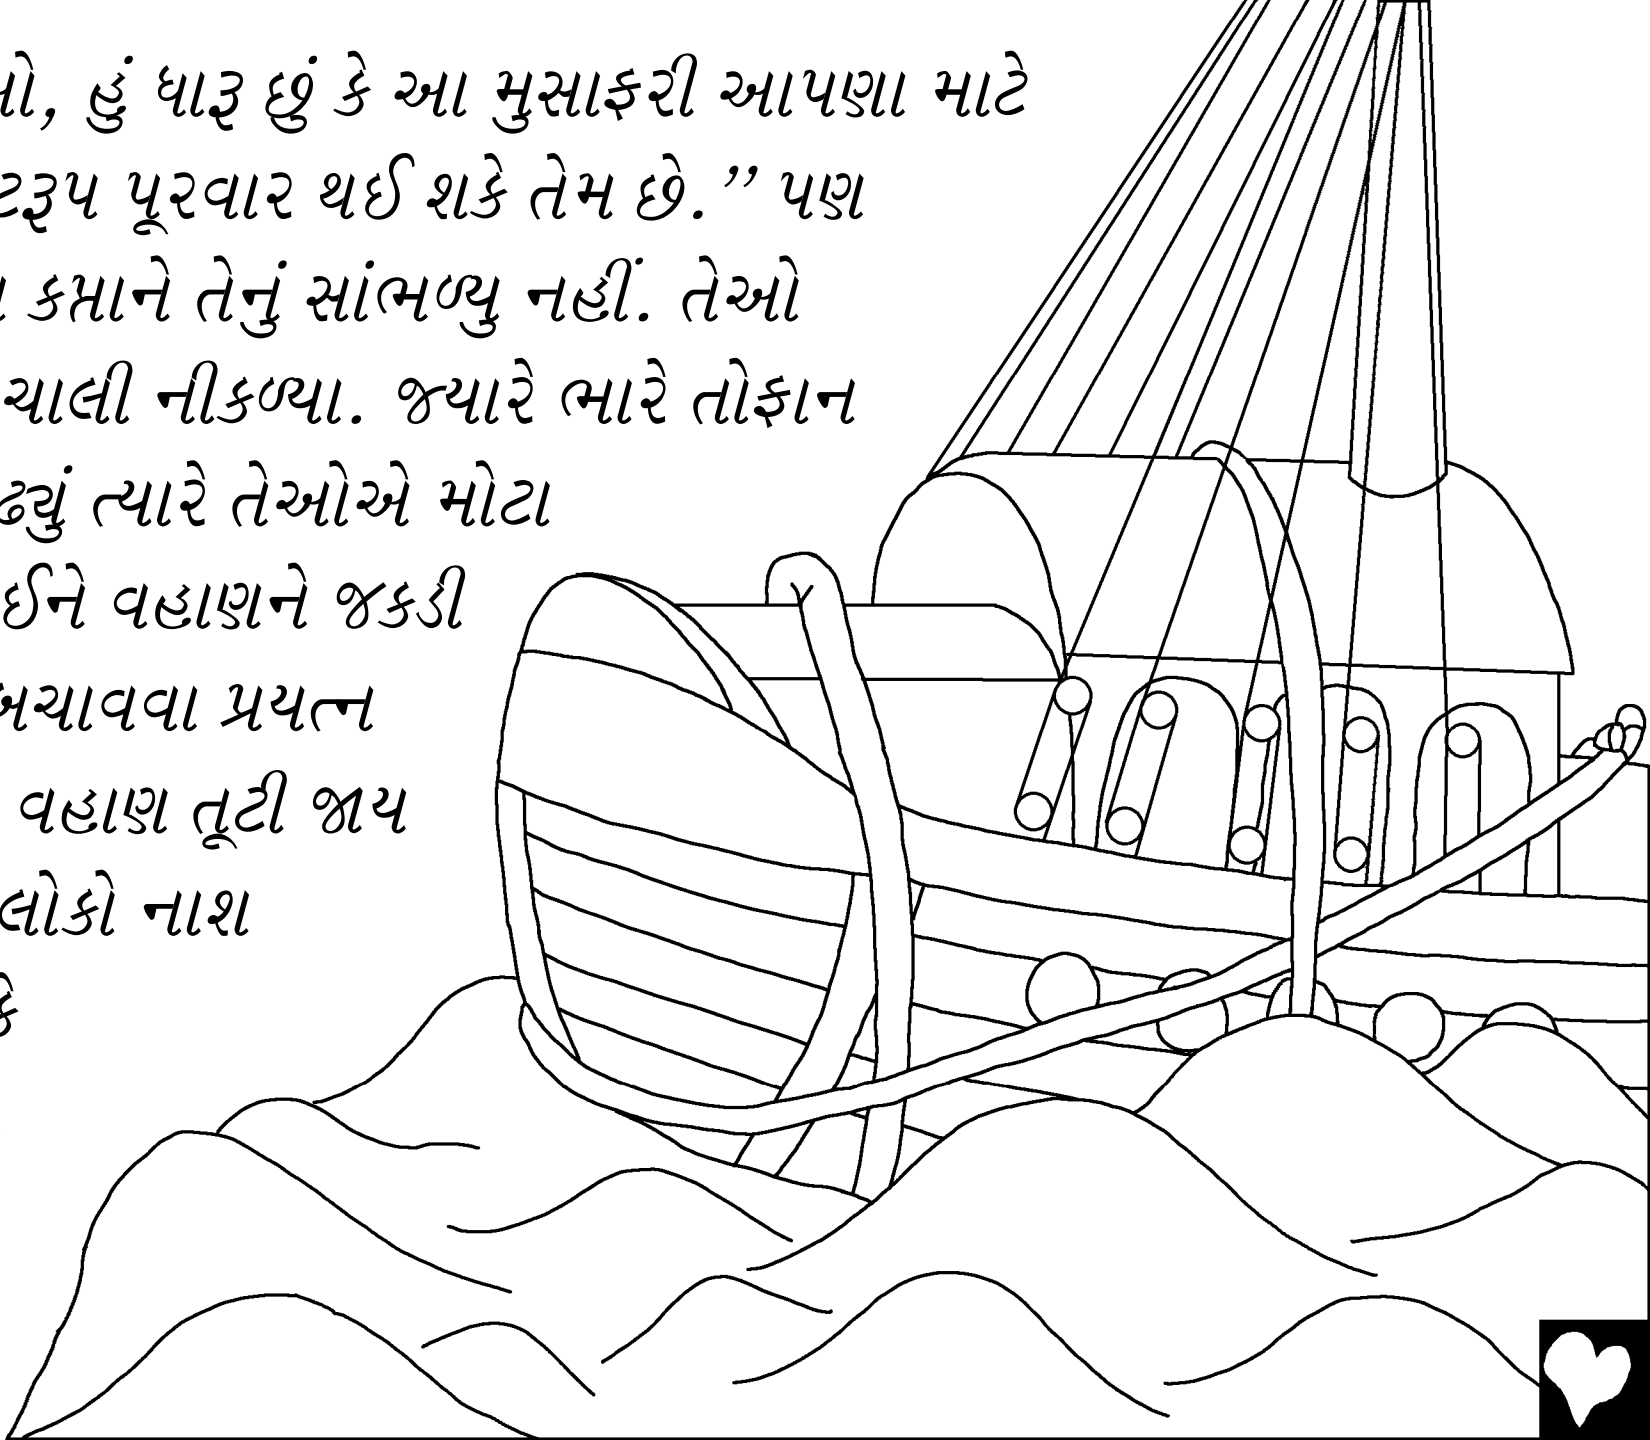 હું ધારૂ છું કે આ મુસાફરી આપણા માટે
પૂરવાર થઈ શકે તેમ છે.” પણ
કપ્તાને તેનું સાંભળ્યુ નહીં. તેઓ
ચાલી નીકળ્યા. જ્યારે ભારે તોફાન
ત્યારે તેઓએ મોટા
વહાણને જકડી
બચાવવા પ્રયત્ન
વહાણ તૂટી જાય
લોકો નાશ
કે